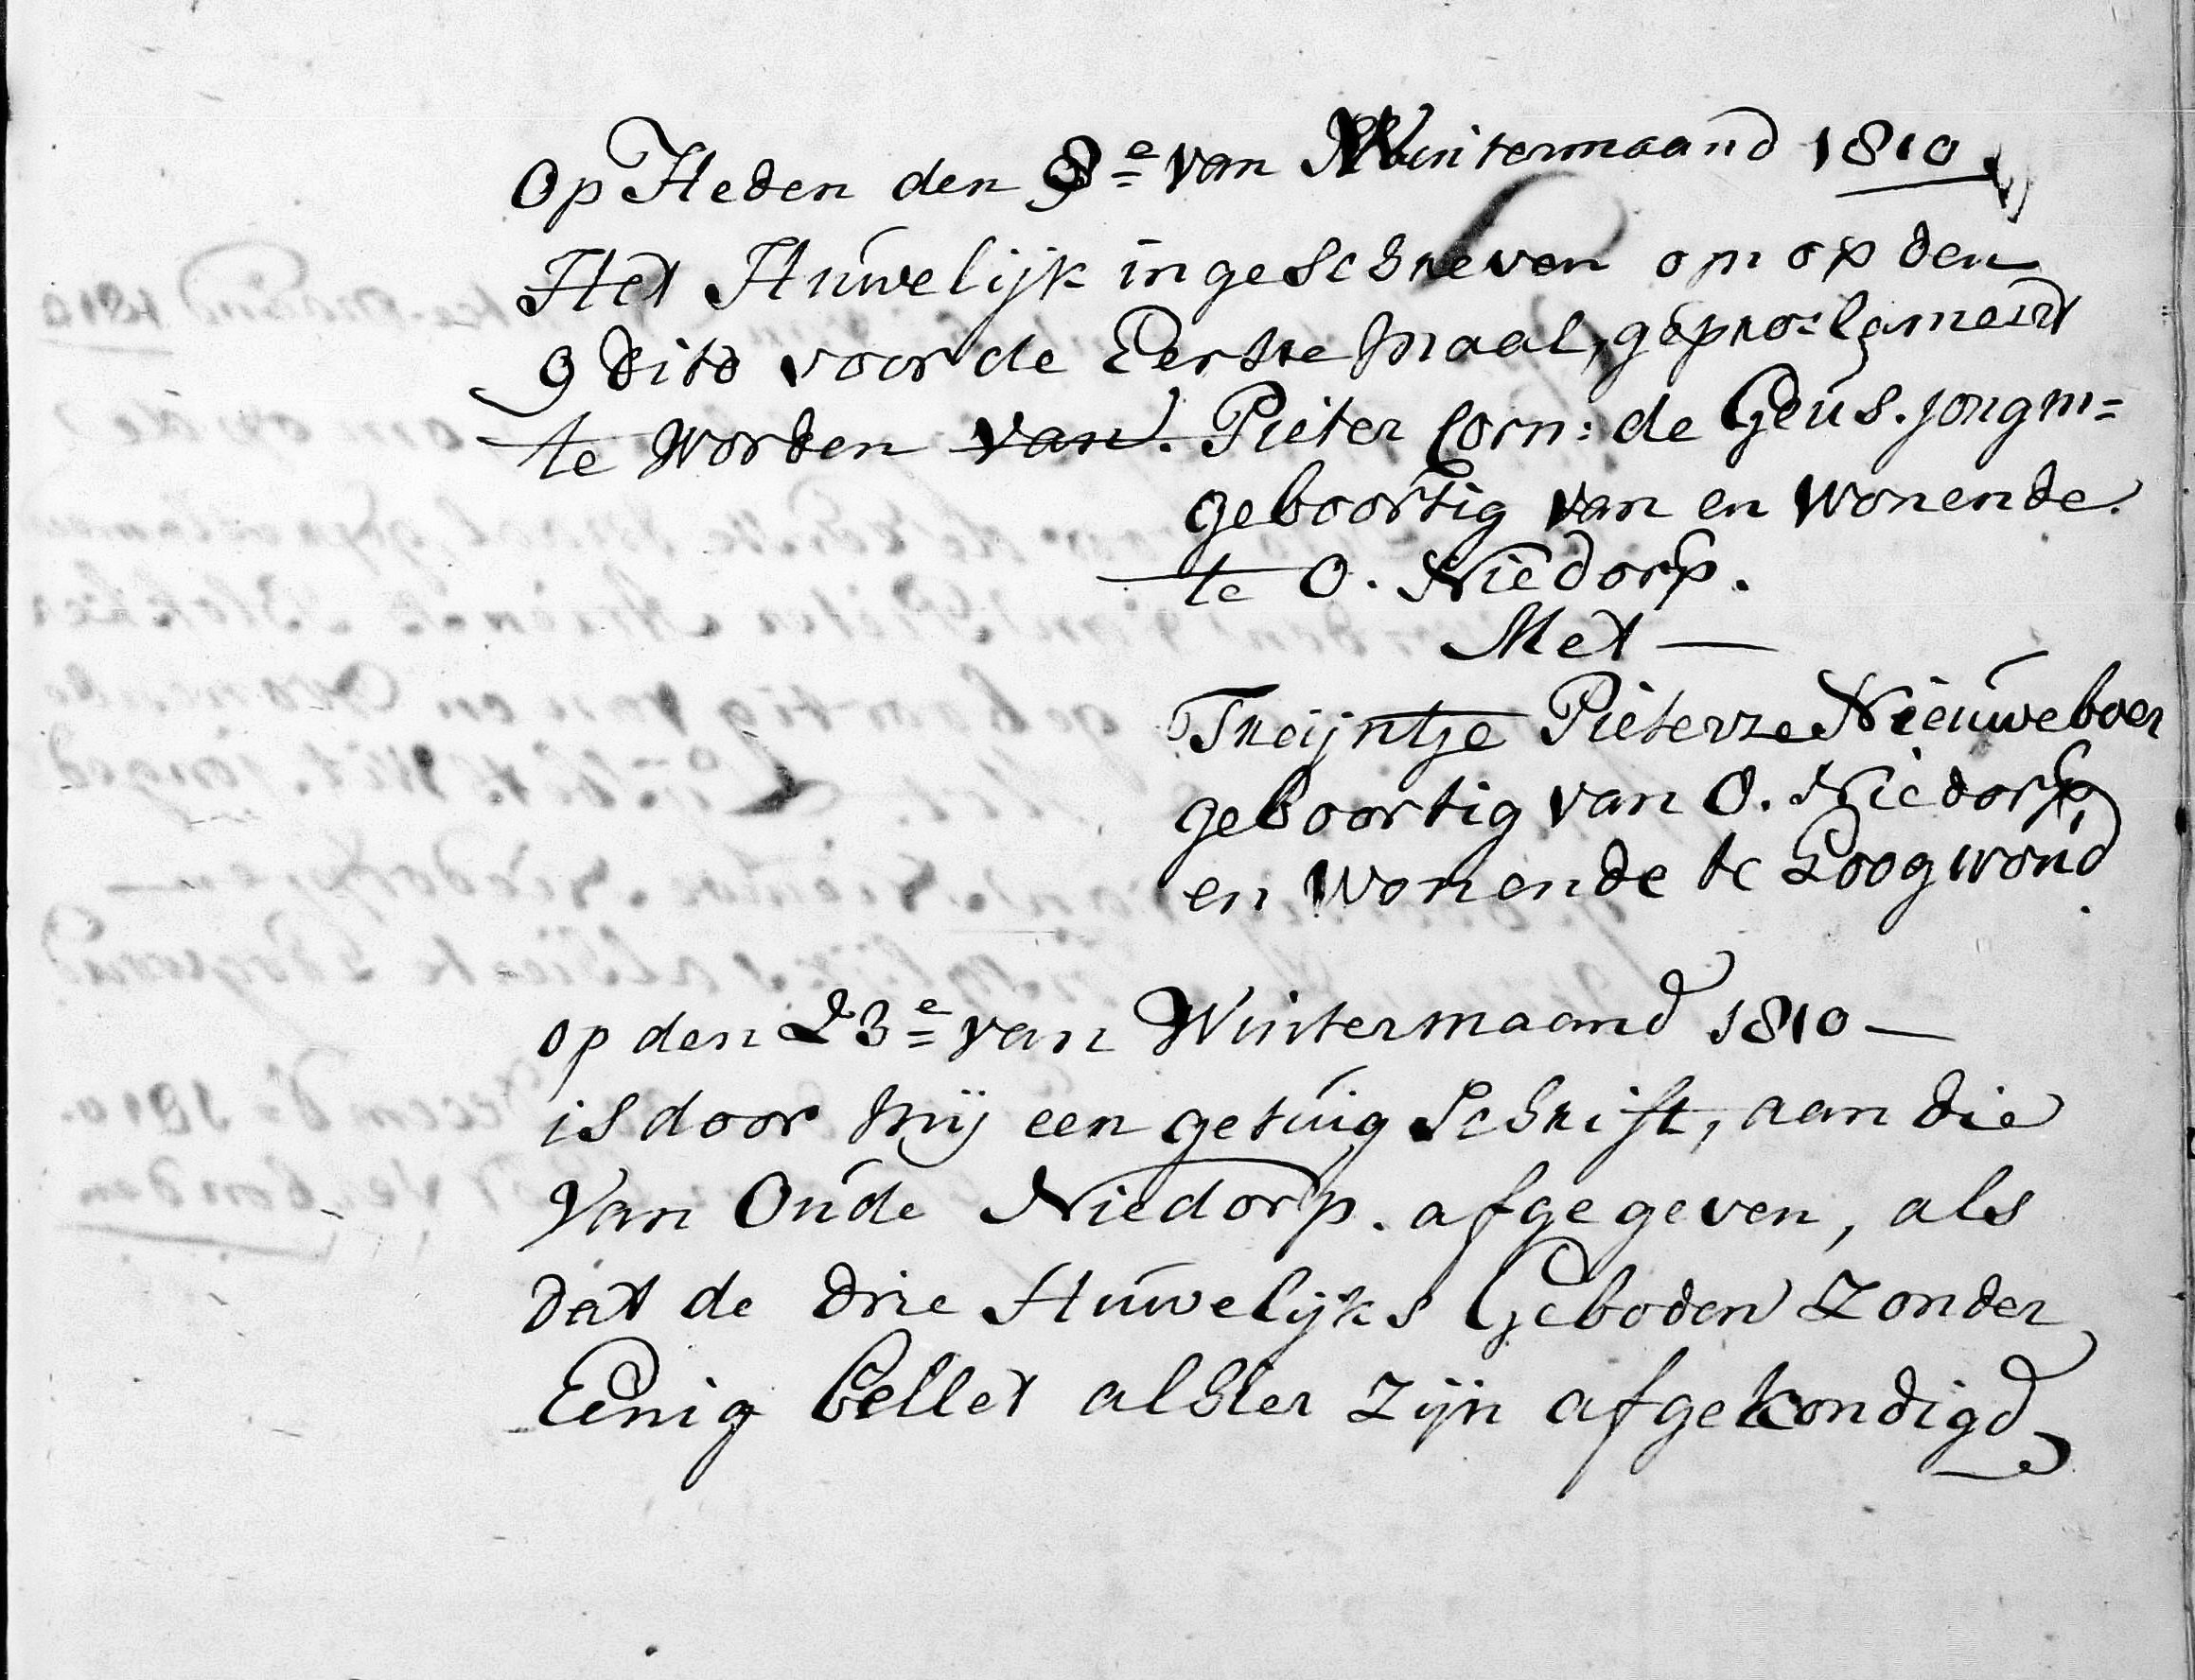 Op Heden den 8e van Wintermaand 1810
Het Huwelijk ingeschreven om op den
9 dito voor de Eerste maal, geproclameert
te worden van. Pieter Corn: de Geus. jongm=
geboortig van en wonende
te O. Niedorp.
Met —
Treijntje Pieterze Nieuweboer
geboortig van O. Niedorp,
en wonende te Hoogwoud
op den 23e van Wintermaand 1810 —
is door mij een getuig Schrift, aan die
van Oude Niedorp. afgegeven, als
dat de drie Huwelijks Geboden zonder
Eenig bellet alhier zijn afgekondigd